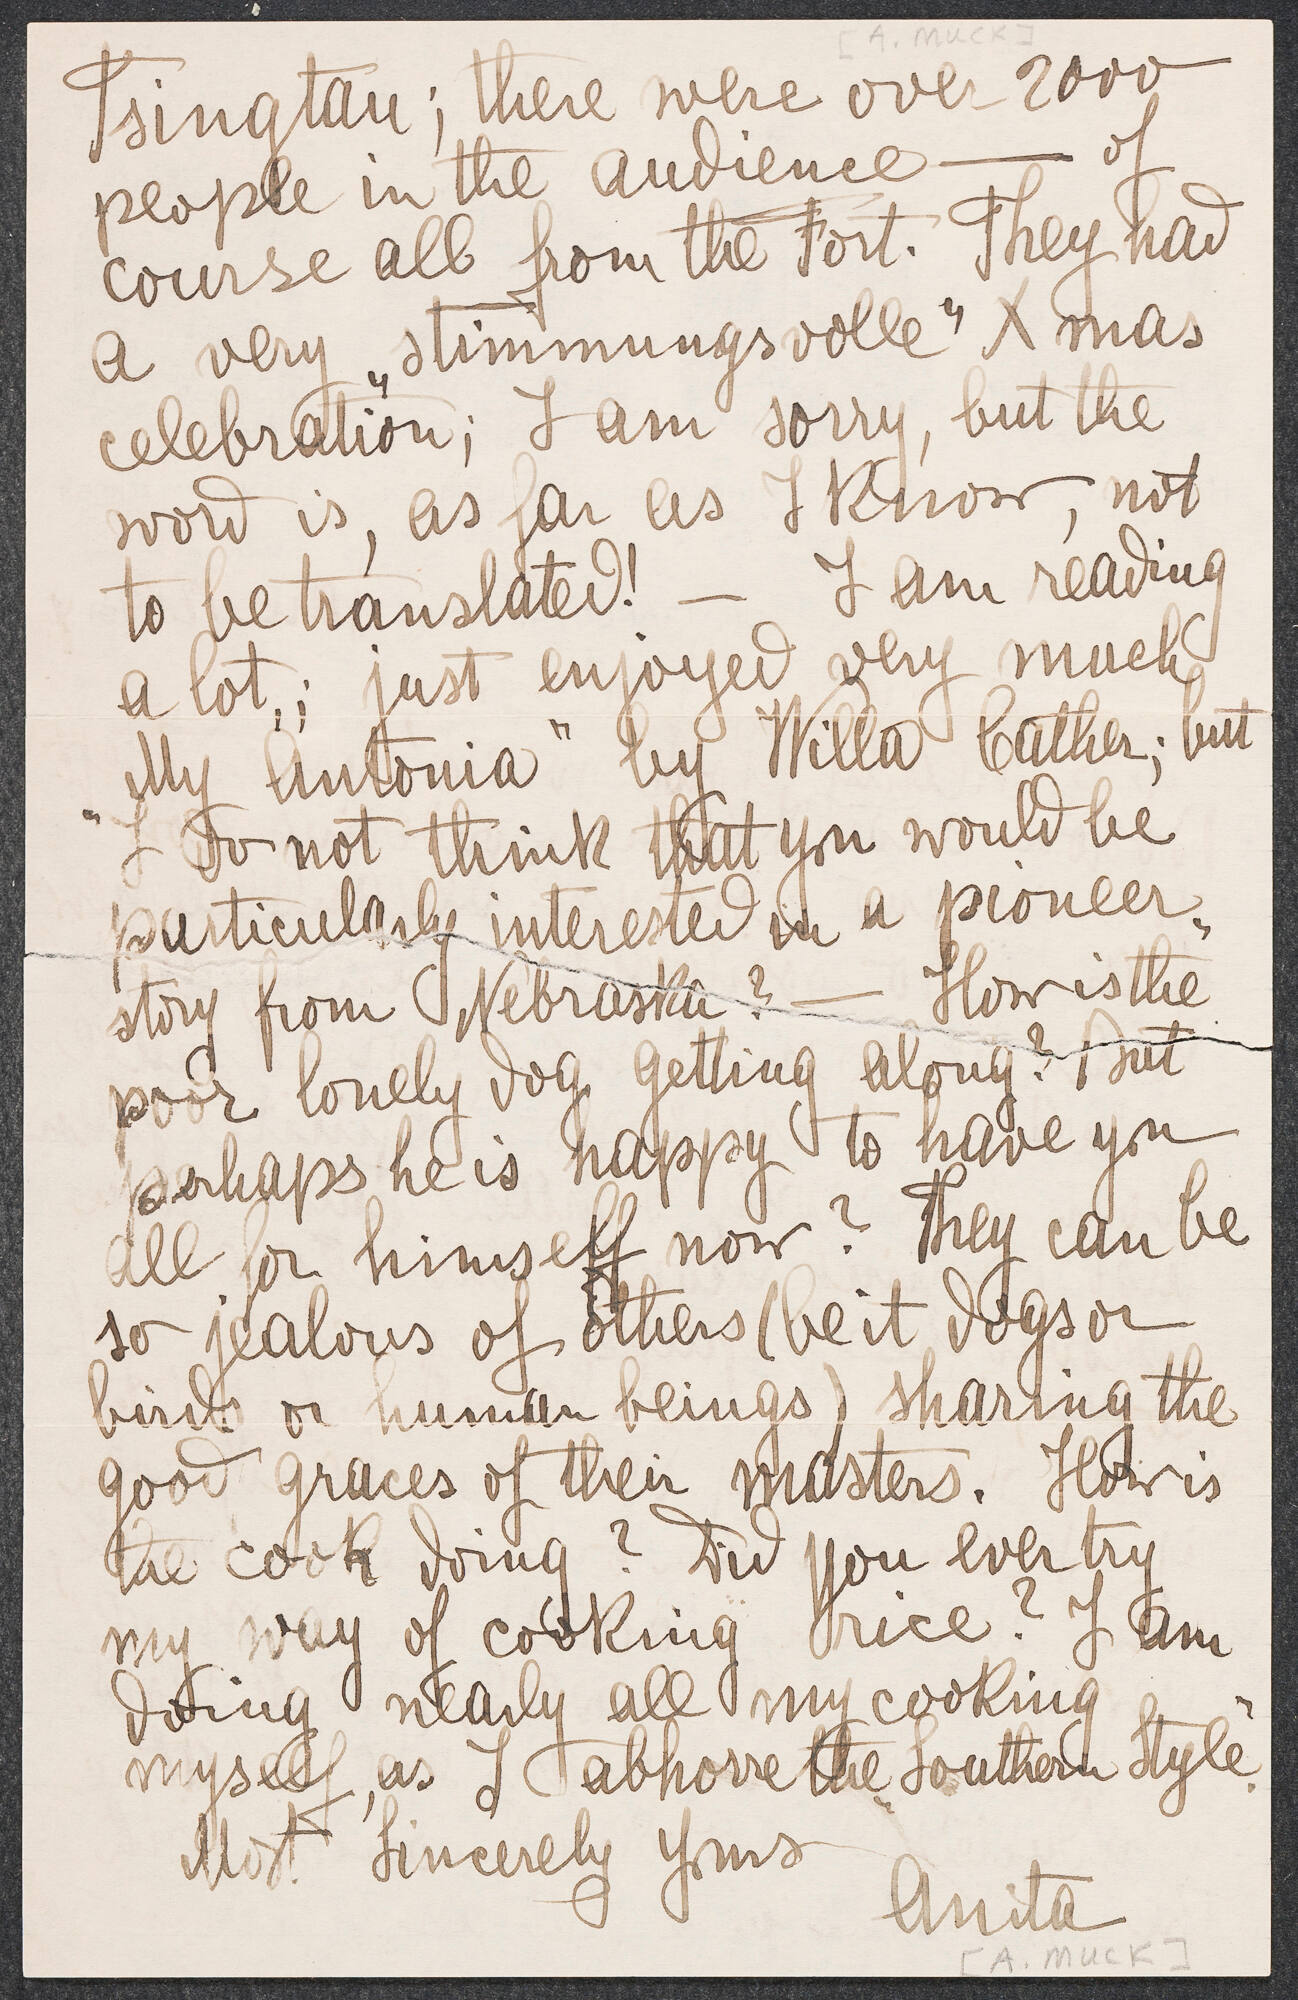 [A. MUCK]
Tsingtau; there were over 2000
people in the audience — of
course all from the Fort. They had
a very „stimmungsvolle" Xmas
celebration; I am sorry, but the
word is, as far as I know, not
to be translated! — I am reading
a lot,; just enjoyed very much
„My Antonia" by Willa Cather; but
I do not think that you would be
particularly interested in a pioneer-
story from Nebraska? — How is the
poor lonely dog getting along? But
perhaps he is happy to have you
all for himself now? They can be
so jealous of others (be it dogs or
birds or human beings) sharing the
good graces of their masters. How is
the cook doing? Did you ever try
my way of cooking rice? I am
doing nearly all my cooking
myself, as I abhorre the „Southern Style".
Most Sincerely yours
Anita
[A. MUCK]